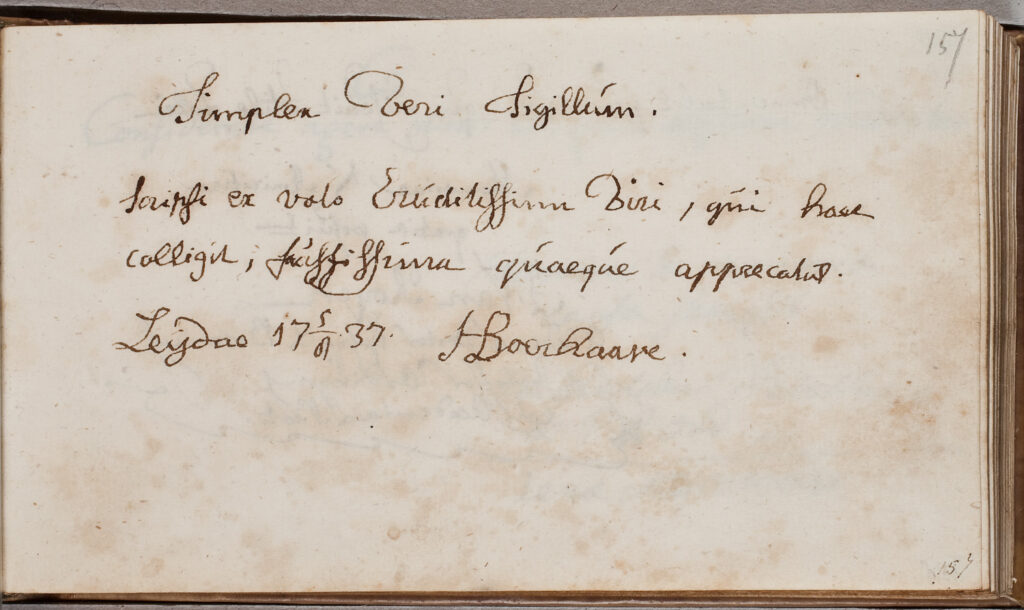 157
Simplex Veri Sigillum.
scripsi ex voto Eruditissimi Viri, qui haec
colligit, faustissima quaeque apprecatus.
Leydae 17 5/9 37. HBoerhaave.
157